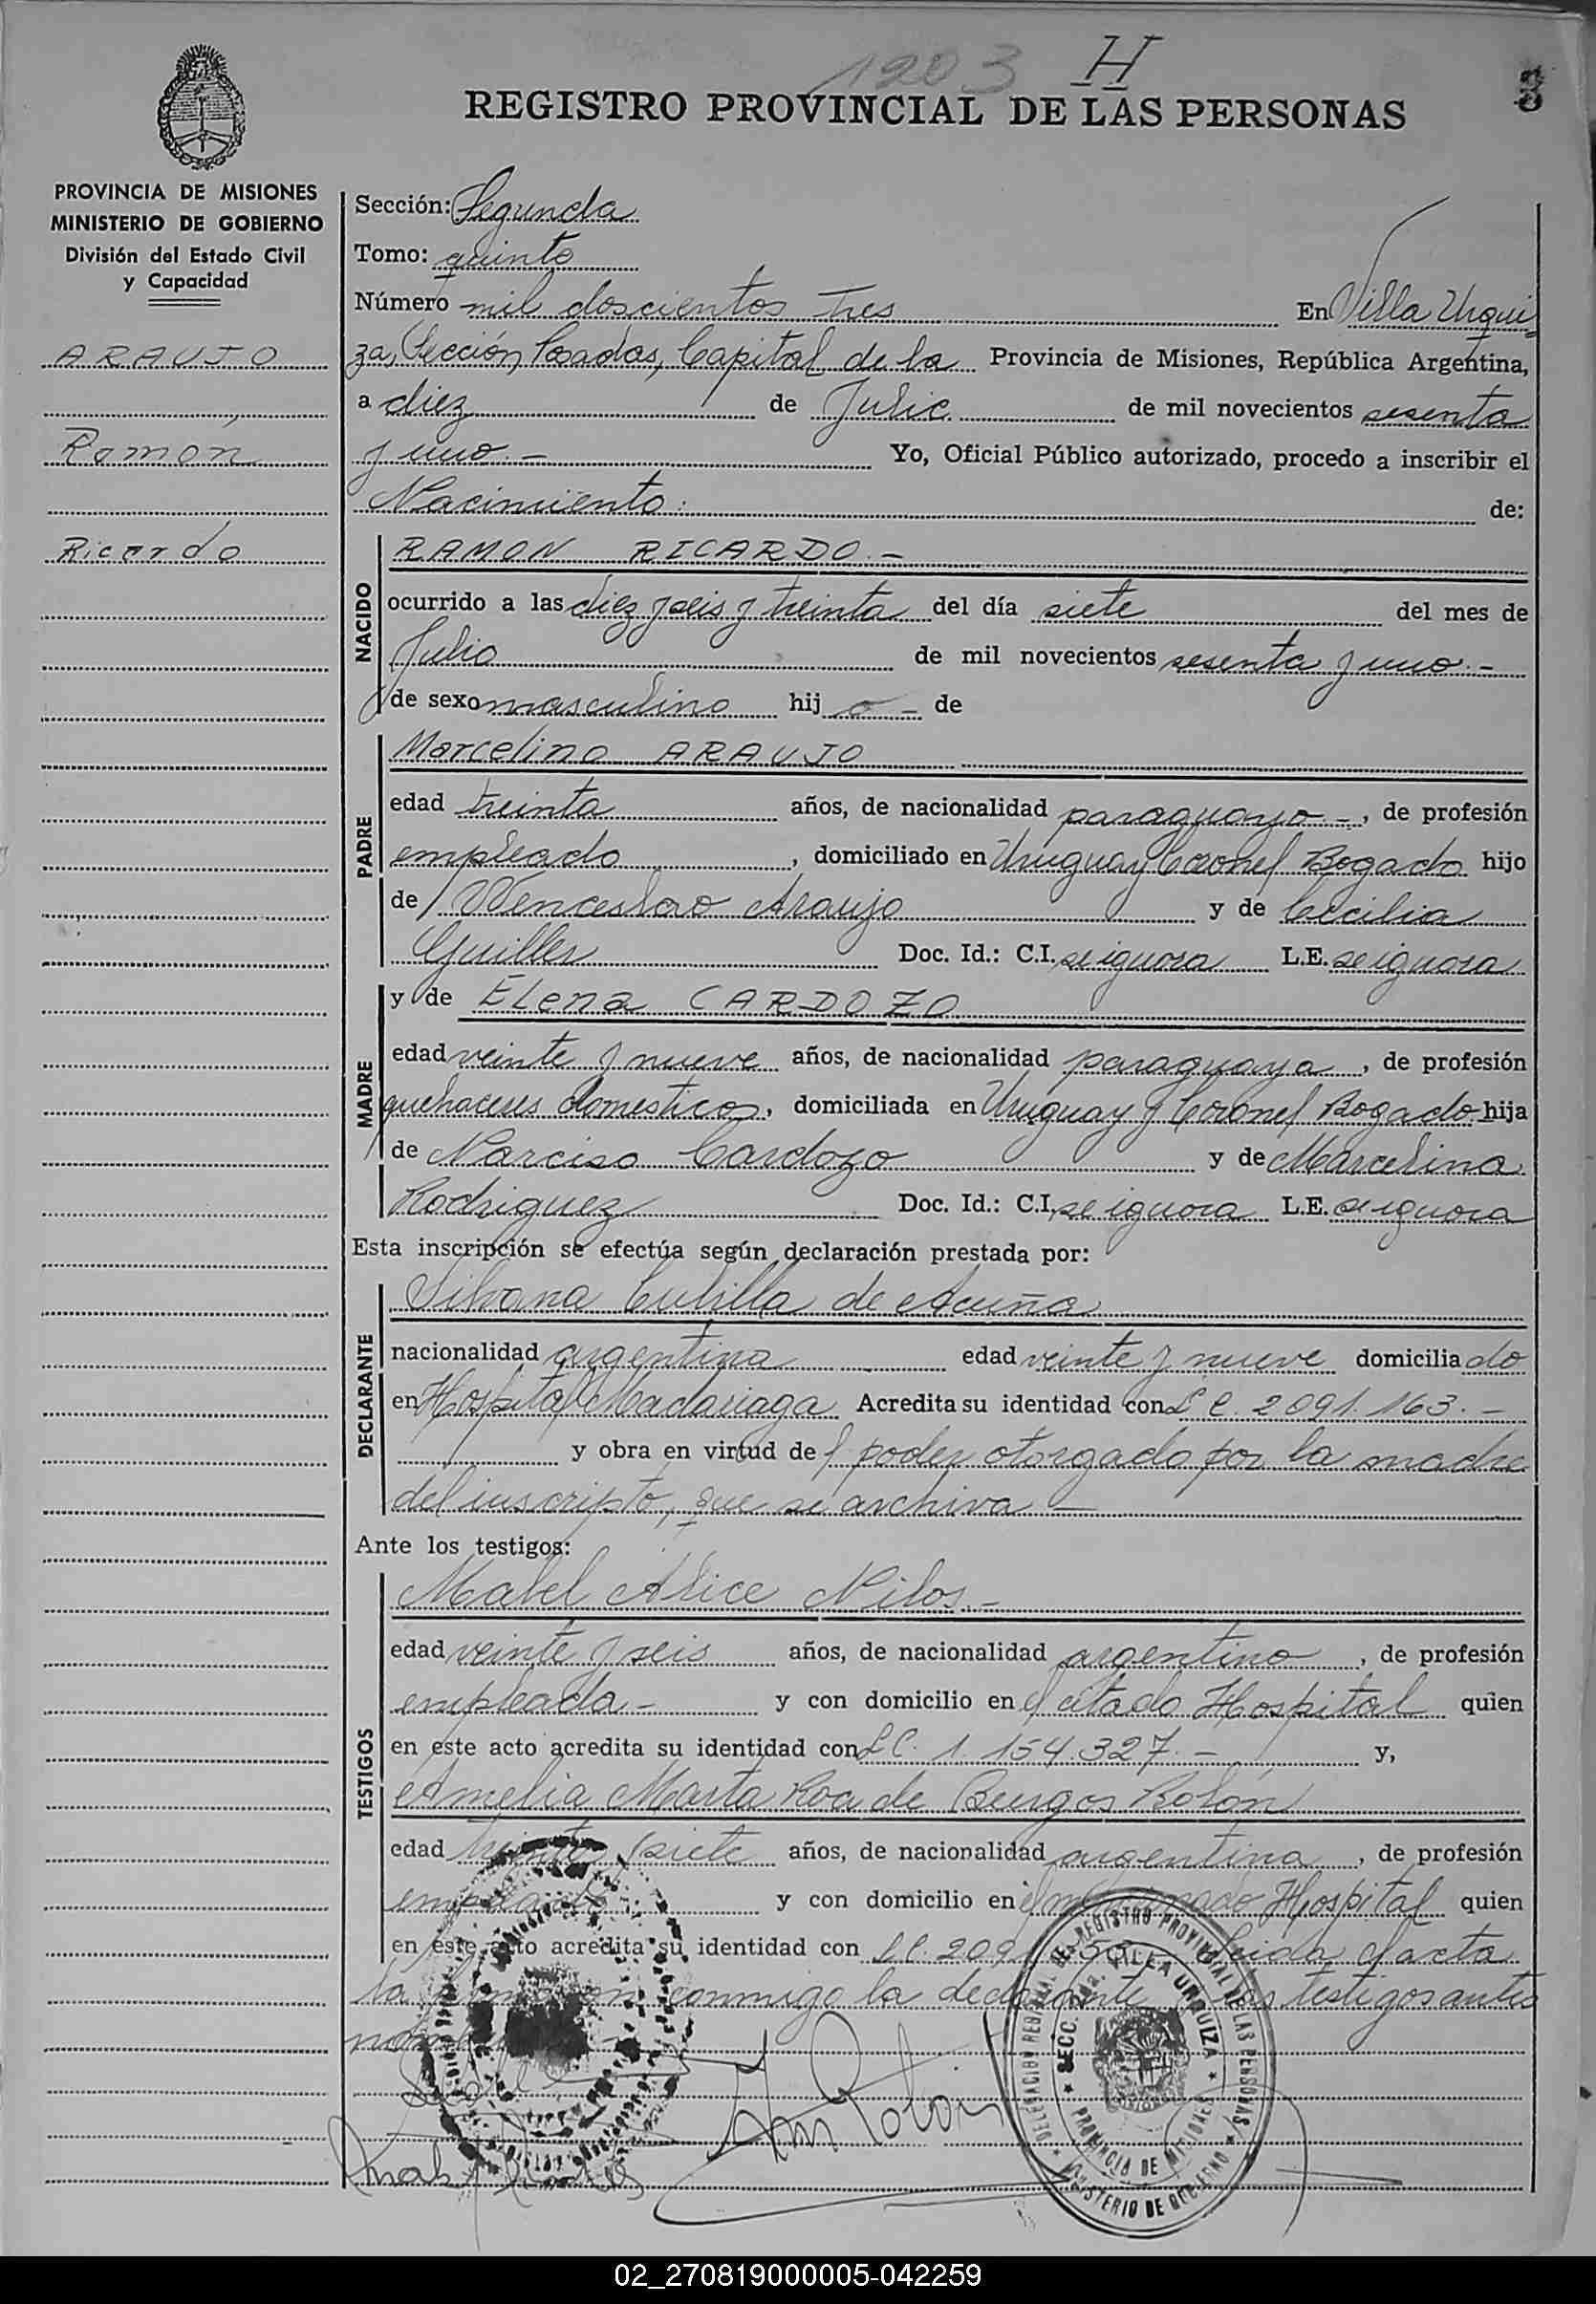 1203 H
3
REGISTRO PROVINCIAL DE LAS PERSONAS
PROVINCIA DE MISIONES
MINISTERIO DE GOBIERNO
División del Estado Civil
y Capacidad
ARAUJO
,
Ramón
Ricardo
Sección: Segunda
Tomo: quinto
Número mil doscientos tres En Villa Urqui
za, Sección Posadas, Capital de la Provincia de Misiones, República Argentina,
a diez de Julio de mil novecientos sesenta
y uno.- Yo, Oficial Público autorizado, procedo a inscribir el
Nacimiento: de:
NACIDO
RAMON RICARDO.-
ocurrido a las diez y seis y treinta del día siete del mes de
Julio de mil novecientos sesenta y uno.-
de sexo masculino hij o - de
PADRE
Marcelino ARAUJO
edad treinta años, de nacionalidad paraguayo -, de profesión
empleado, domiciliado en Uruguay Coronel Bogado hijo
de Wenceslao Araujo y de Cecilia
Guillen Doc. Id.: C.I. se ignora L.E. se ignora
MADRE
y de Elena CARDOZO
edad veinte y nueve años, de nacionalidad paraguaya, de profesión
quehaceres domesticos, domiciliada en Uruguay y Coronel Bogado hija
de Narciso Cardozo y de Marcelina
Rodriguez Doc. Id.: C.I. se ignora L.E. se ignora
Esta inscripción se efectúa según declaración prestada por:
DECLARANTE
Silvana Cubilla de Acuña
nacionalidad argentina edad veinte y nueve domiciliado
en Hospital Madariaga Acredita su identidad con L C. 2091.163.-
y obra en virtud de poder otorgado por la madre
del inscripto, que se archiva -
Ante los testigos:
TESTIGOS
Mabel Alice
edad veinte y seis años, de nacionalidad argentina, de profesión
empleada - y con domicilio en el citado Hospital quien
en este acto acredita su identidad con L C. 1.154.327.- y,
Amelia Marta Roa de Burgos Bolón
edad treinta y siete años, de nacionalidad argentina, de profesión
empleada y con domicilio en Hospital quien
en este acto acredita su identidad con L C. 209 Leida el acta
la conmigo la declarante y los testigos antes
DELEGACION REGIONAL DEL REGISTRO PROVINCIAL DE LAS PERSONAS
SECC. VILLA URQUIZA
PROVINCIA DE MISIONES
MINISTERIO DE GOBIERNO
02_270819000005-042259